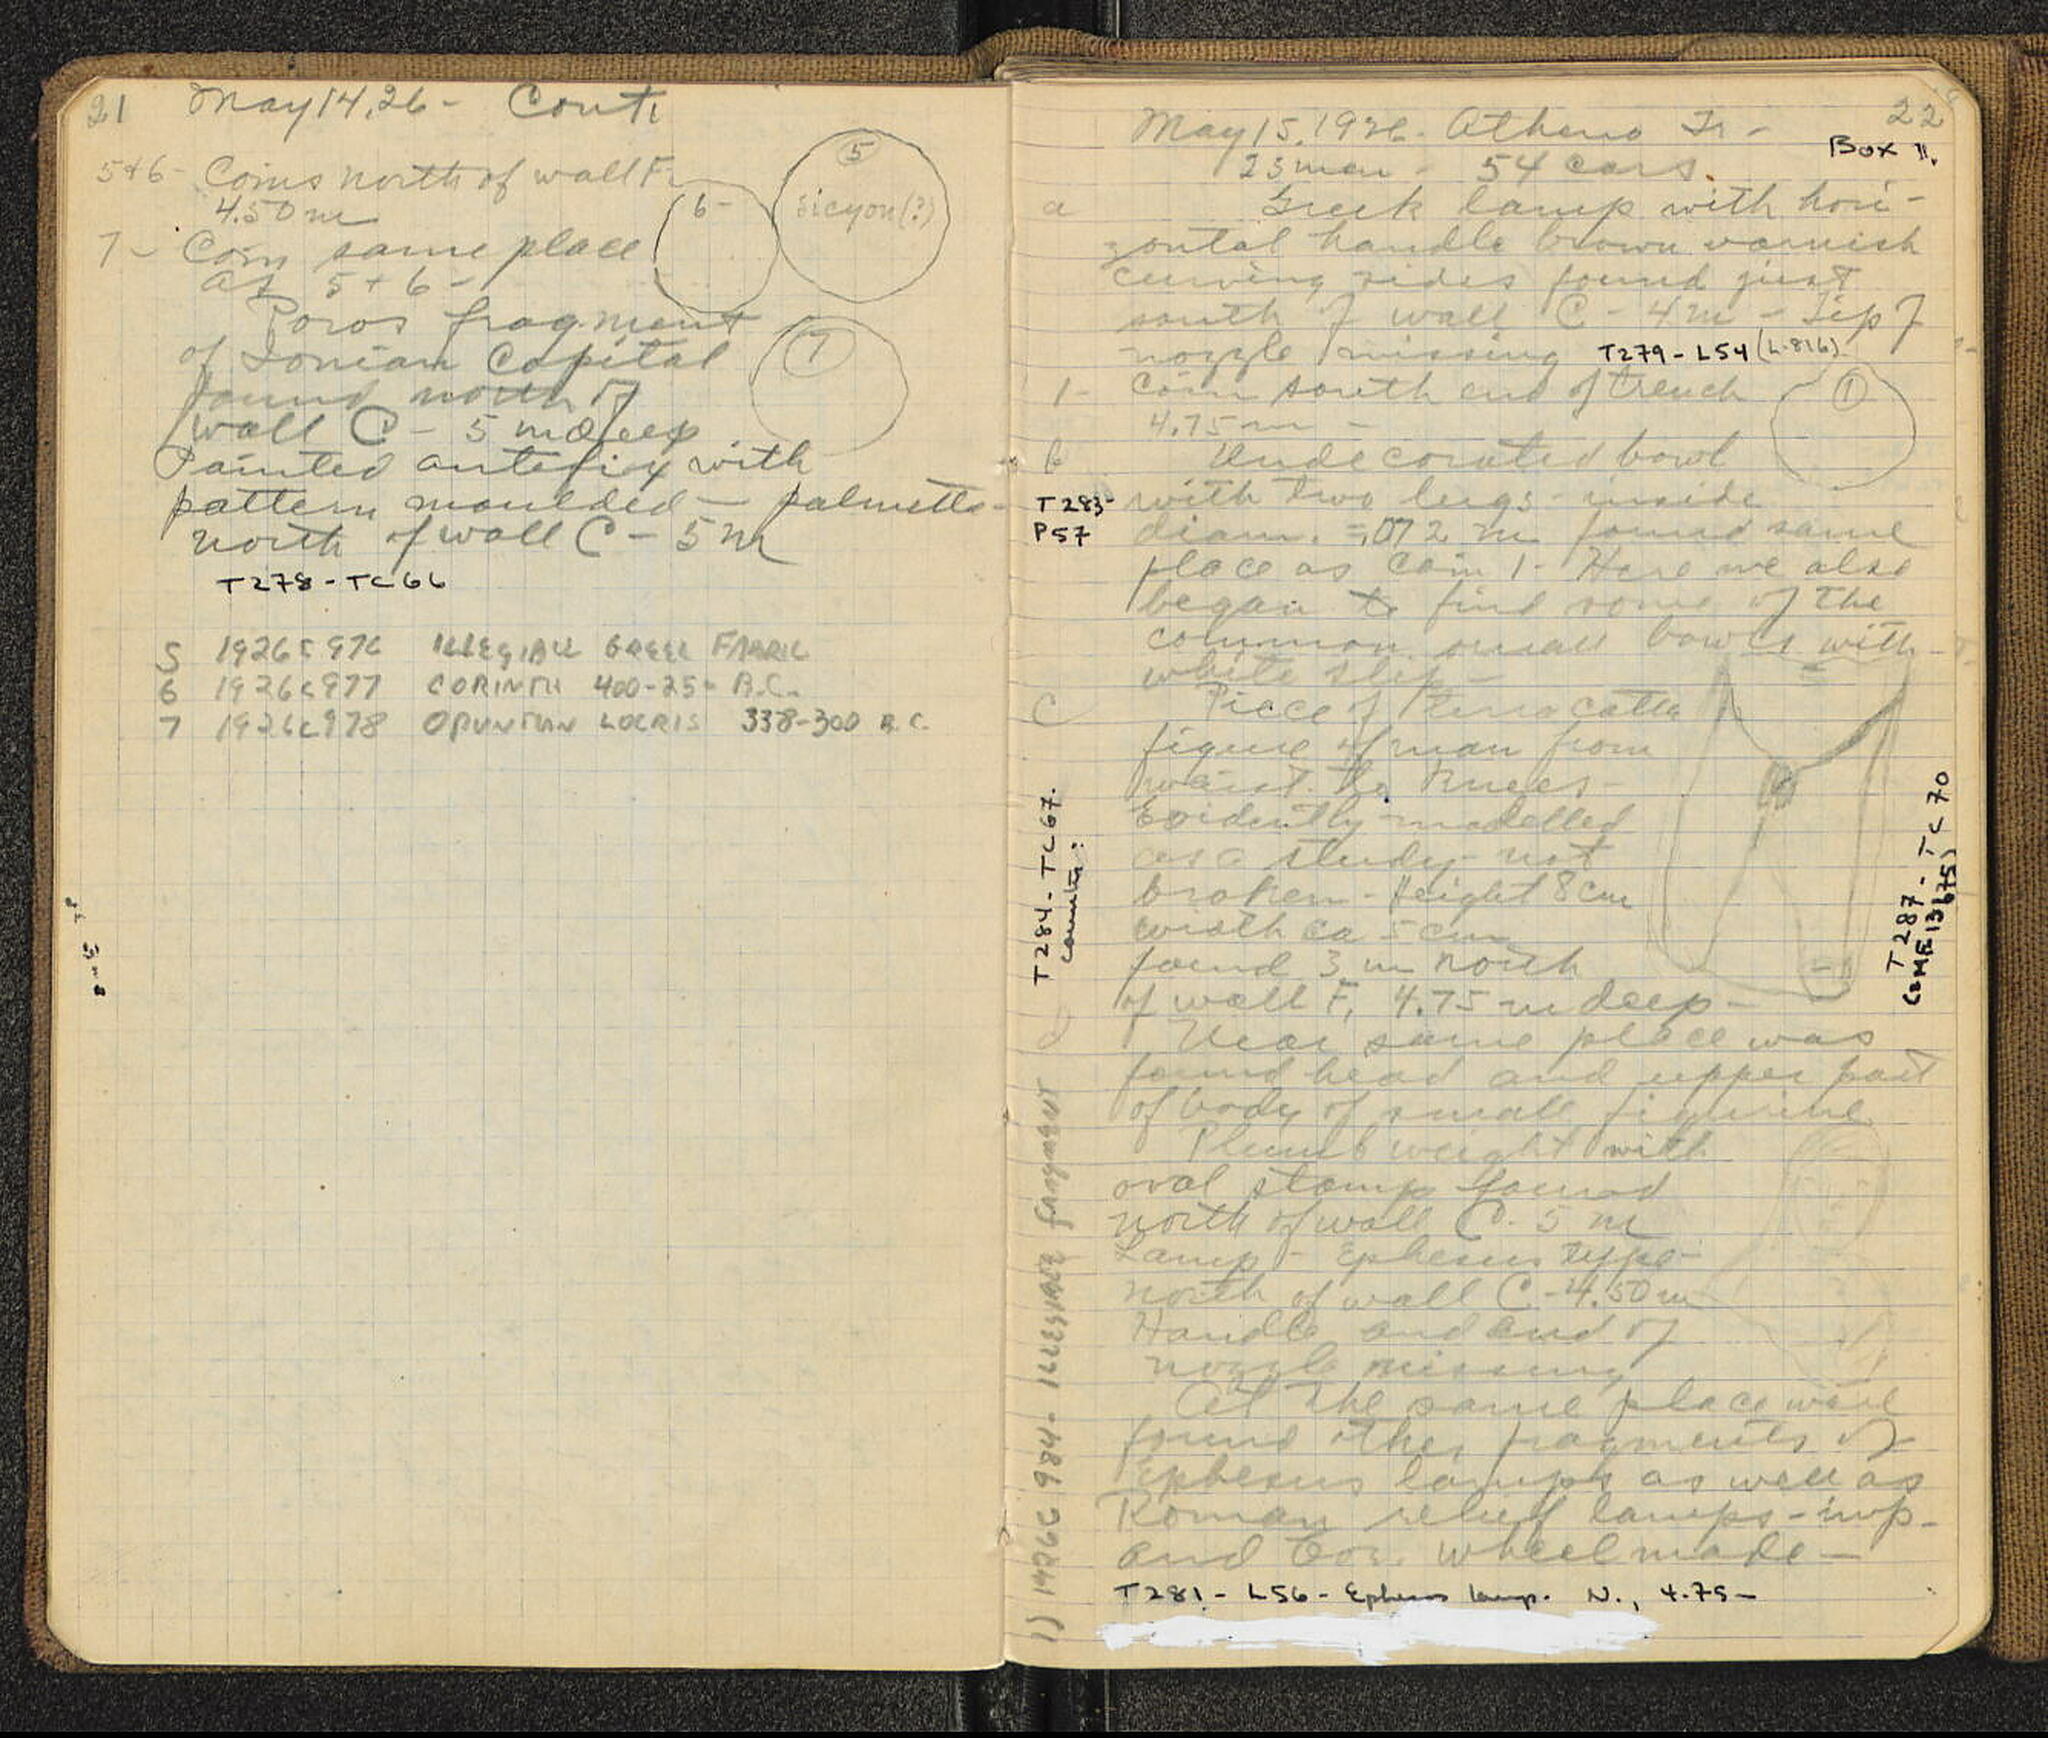 21 May 14, 26 - Conti
5+6- Coins north of wall F.
4.50 m
5
Sicyon(?)
6-
7- Coin same place
as 5 + 6 -
7
Poros fragment
of Ionian Capital
found north of
wall C - 5 m deep
Painted antefix with
pattern moulded - palmette-
north of wall C - 5 m
T278 - TC66
5 1926c976 ILLEGIBLE GREEK FABRIC
6 1926c977 CORINTH 400-25- B.C.
7 1926c978 OPUNTIAN LOCRIS 338-300 B.C.
22
May 15, 1926. Athena Tr -
Box II.
23 men - 54 cars.
a Greek lamp with hori-
zontal handle brown varnish
curving sides found just
south of wall C - 4 m - Tip of
nozzle missing T279 - L54 (L.816)
1- Coin south end of trench
4.75 m -
1
b Undecorated bowl
T283- P57
with two lugs - inside
diam. = .072 m found same
place as Coin 1 - Here we also
began to find some of the
common small bowls with
white slip -
c Piece of Terra cotta
figure of man from
waist to knees -
Evidently modelled
as a study - not
broken - Height 8 cm
width ca 5 cm
found 3 m north
of wall F, 4.75 m deep -
T284 - TC67.
T287 - TC70
Near same place was
found head and upper part
of body of small figurine
Plumb weight with
oval stamp found
north of wall C - 5 m
Lamp - Ephesus type -
north of wall C - 4.50 m
Handle and end of
nozzle missing
At the same place were
found other fragments of
Ephesus lamps as well as
Roman relief lamps - imp -
and Cor. wheelmade -
T281 - L56 - Ephesus lamp. N., 4.75 -
1) 1926c 984 - ILLEGIBLE fragment